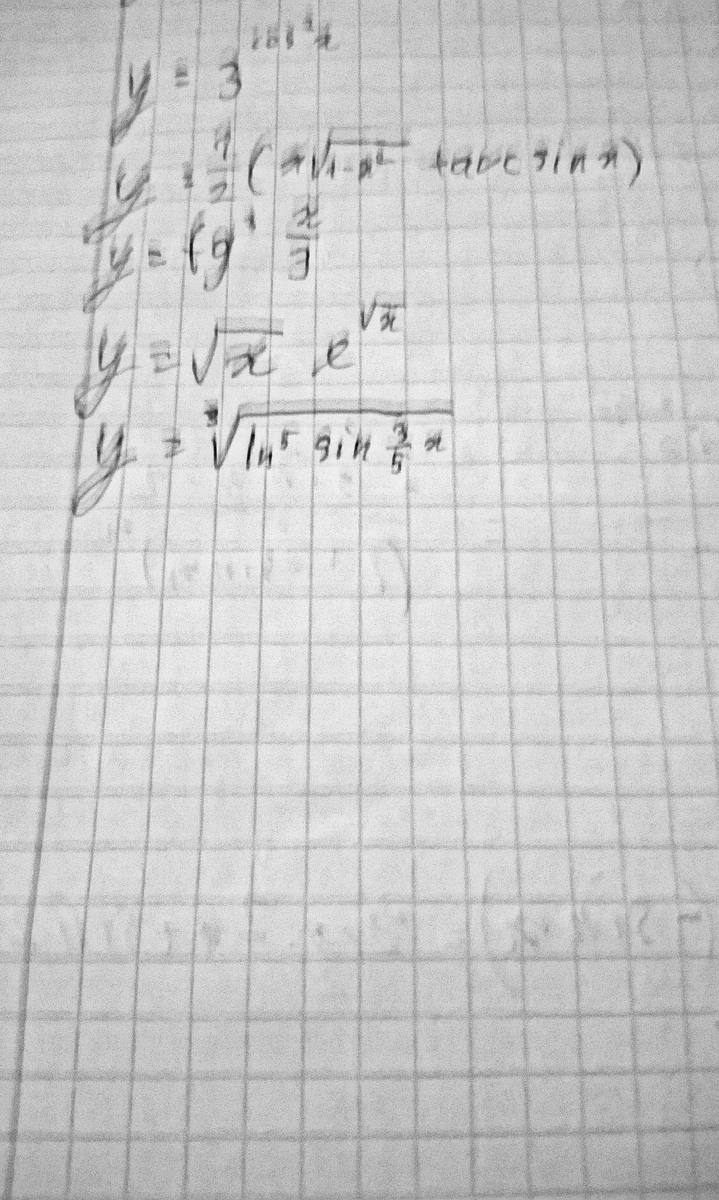 y = 3^{cos² x}
y = 1/2 (x√(1-x²) + arc sin x)
y = tg x/3
y = √x e^{√x}
y = ∛(ln⁵ sin 3/5 x)